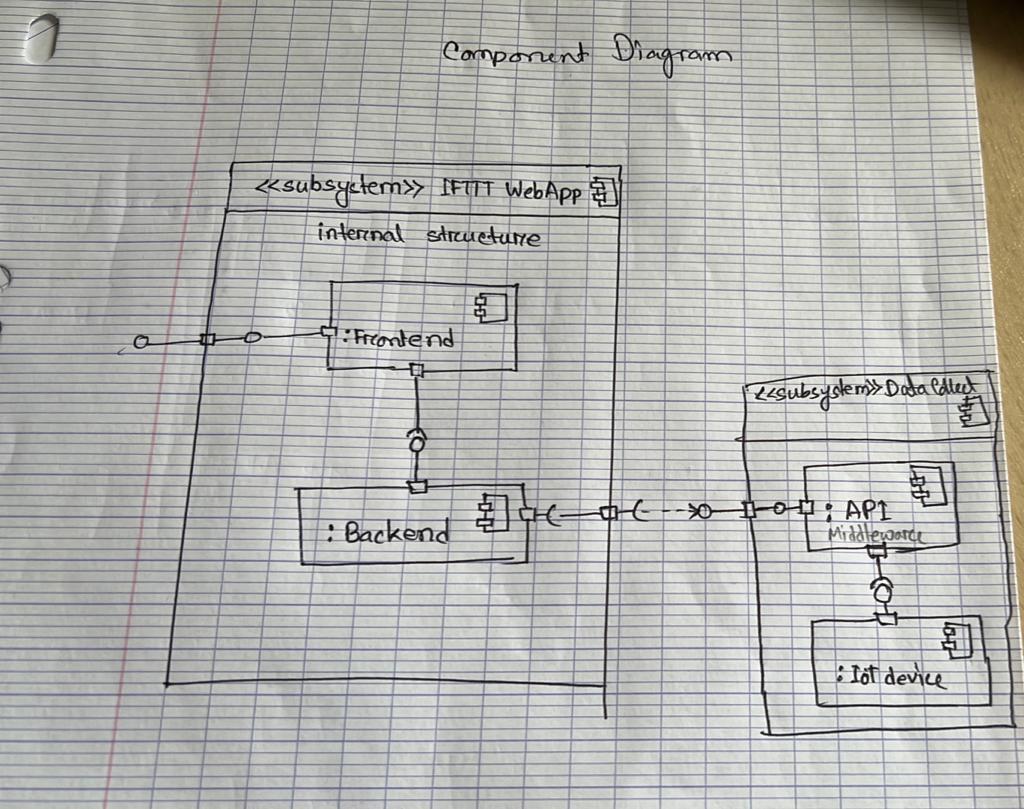 Component Diagram
<<subsystem>> IFTTT WebApp
internal structure
:Frontend
<<subsystem>> Data Collect
: Backend
: API
Middleware
: IoT device